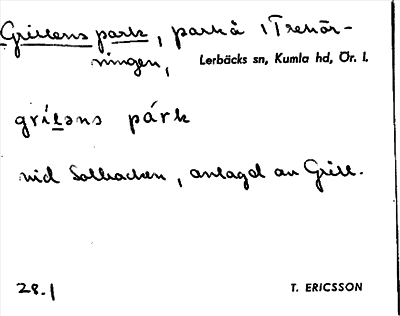 Grillens park, park å 1 Trehör-
ningen, Lerbäcks sn, Kumla hd, Ör. l.
gríləns párk
vid Solbacken, anlagd av Grill.
28.1 T. ERICSSON